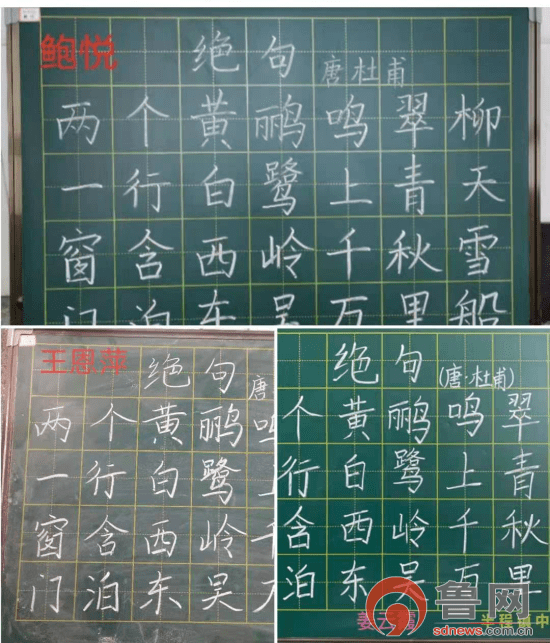 鲍悦
绝句
唐杜甫
两个黄鹂鸣翠柳
一行白鹭上青天
窗含西岭千秋雪
门泊东吴万里船
王恩萍
绝句
唐
两个黄鹂鸣
一行白鹭上
窗含西岭千
门泊东吴万
绝句
(唐·杜甫)
个黄鹂鸣翠
行白鹭上青
含西岭千秋
泊东吴万里
鲁网
sdnews.com.cn